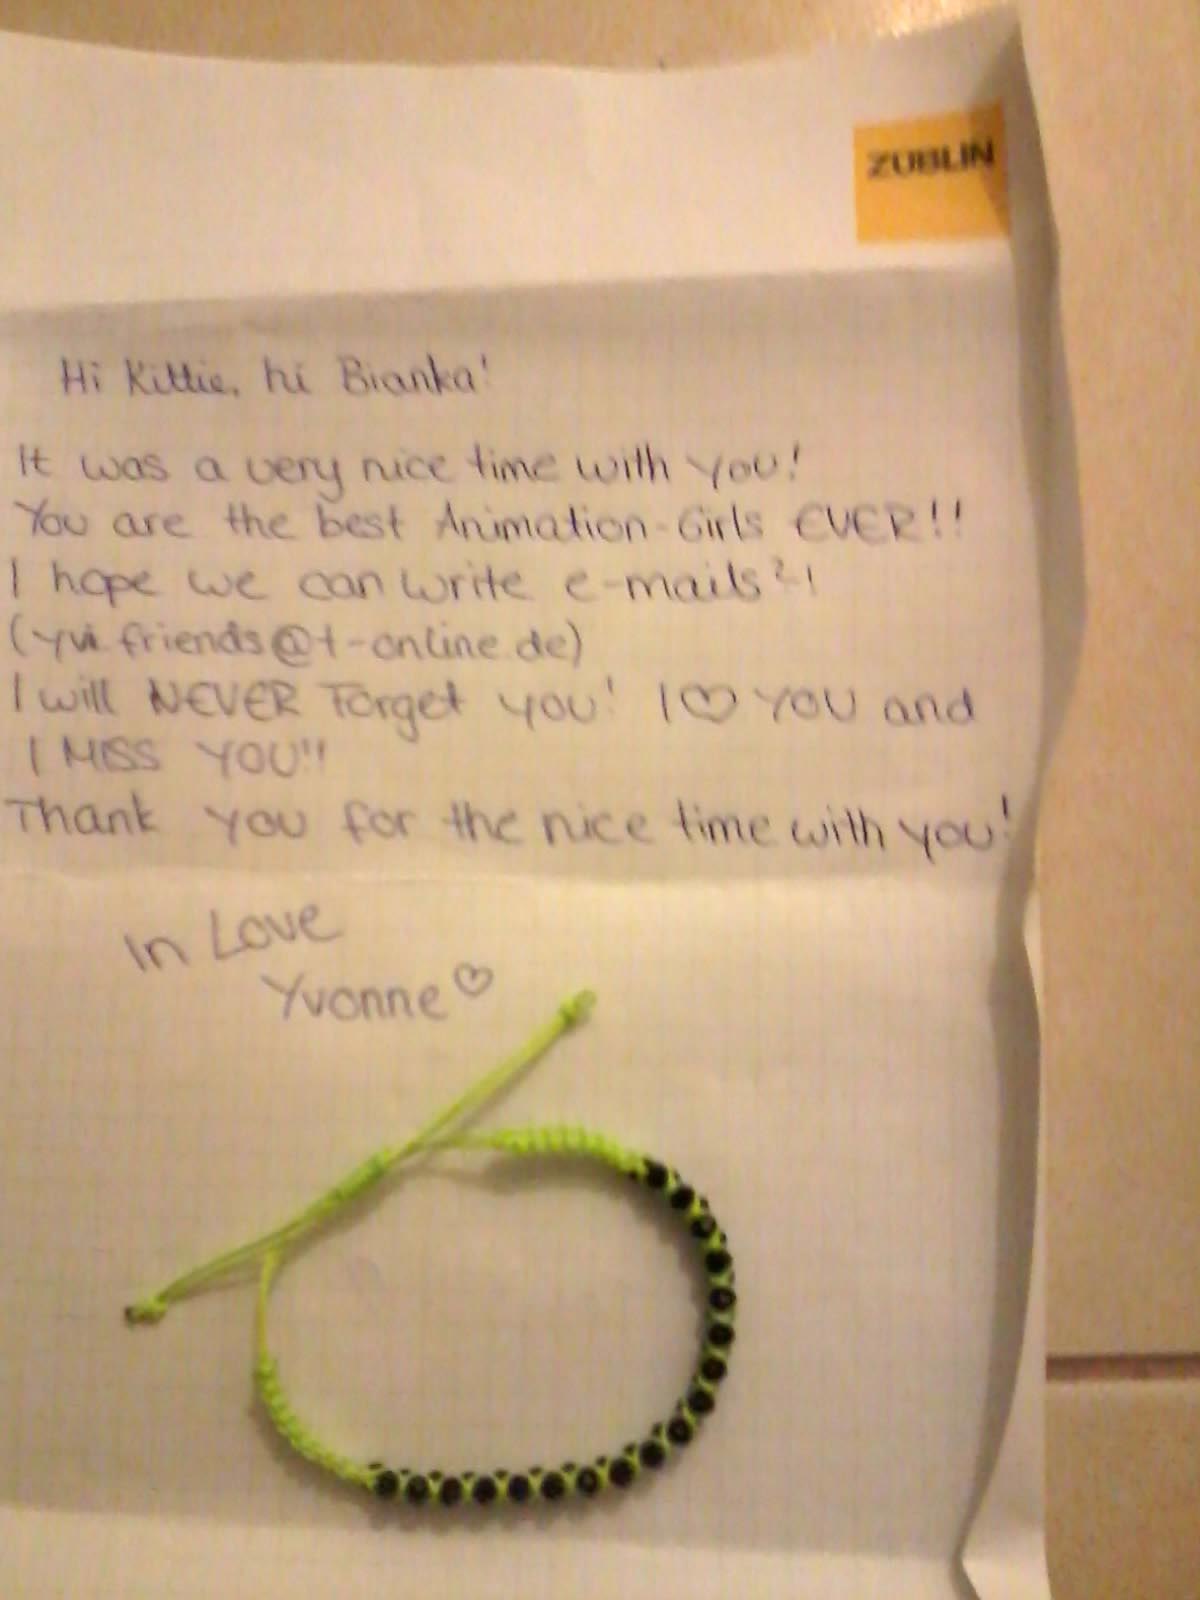 ZÜBLIN
Hi Kittie, hi Bianka!
It was a very nice time with you!
You are the best Animation-Girls EVER!!
I hope we can write e-mails?!
(yvi.friends@t-online.de)
I will NEVER Forget you! I ♡ YOU and
I MISS YOU!!
Thank you for the nice time with you!
In Love
Yvonne ♡